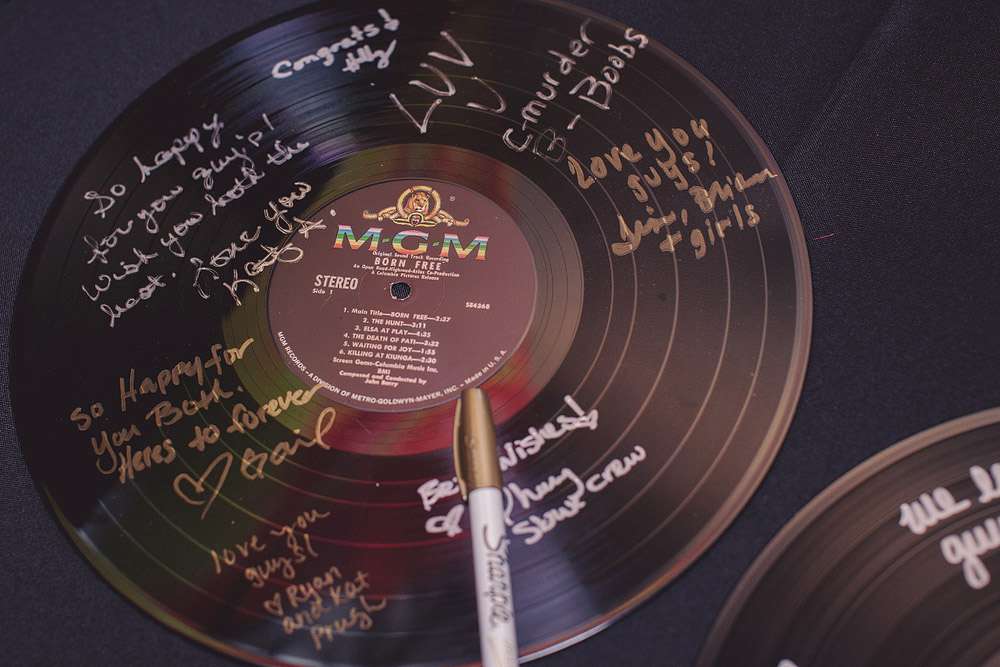 Congrats!
LUV
U
C-murder
- Boobs
Love you
guys!
+ girls
So happy
for you guys!
Wish you both the
best.
Love you
Katy
M-G-M
®
Original Sound Track Recording
BORN FREE
An Open Road-Highroad-Atlas Co-Production
A Columbia Pictures Release
STEREO
Side 1
SE4368
1. Main Title—BORN FREE—3:27
2. THE HUNT—3:11
3. ELSA AT PLAY—4:35
4. THE DEATH OF PATI—3:22
5. WAITING FOR JOY—1:55
6. KILLING AT KIUNGA—2:30
Screen Gems-Columbia Music Inc.
BMI
Composed and Conducted by
John Barry
MGM RECORDS • A DIVISION OF METRO-GOLDWYN-MAYER, INC. • Made in U.S.A.
So Happy for
You Both.
Heres to forever
♡ Gail
Best Wishes!
crew
love you
guys!
♡ Ryan
and Kat
Sharpie
we